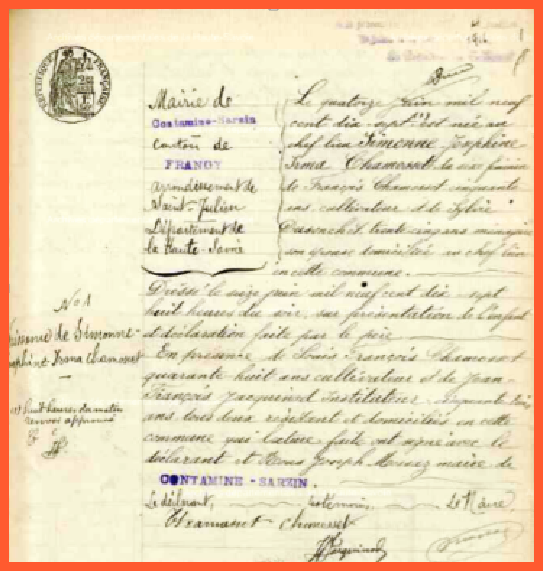 RÉPUBLIQUE FRANÇAISE
Mairie de
Contamine-Sarzin
Canton de
FRANGY
arrondissement de
Saint-Julien
Département de
la Haute-Savoie
Le quatorze juin mil neuf
cent dix-sept est née au
chef lieu Simonne Joséphine
Irma Chamosset de sexe féminin
de François Chamosset cinquante
ans cultivateur et de Sylvie
trente cinq ans ménagère
son épouse domiciliés au chef lieu
in cette commune.
Dressé le seize juin mil neuf cent dix-sept
huit heures du soir, sur présentation de l'enfant
et déclaration faite par le père
En présence de Louis François Chamosset
quarante huit ans cultivateur et de Jean-
François Jacquinod instituteur
ans tous deux résidant et domiciliés en cette
commune qui lecture faite ont signé avec le
déclarant et Joseph maire de
CONTAMINE-SARZIN.
Le déclarant, Le Maire.
Chamosset
No 1
de Simonne-
Irma Chamosset
huit heures du matin
renvoi approuvé